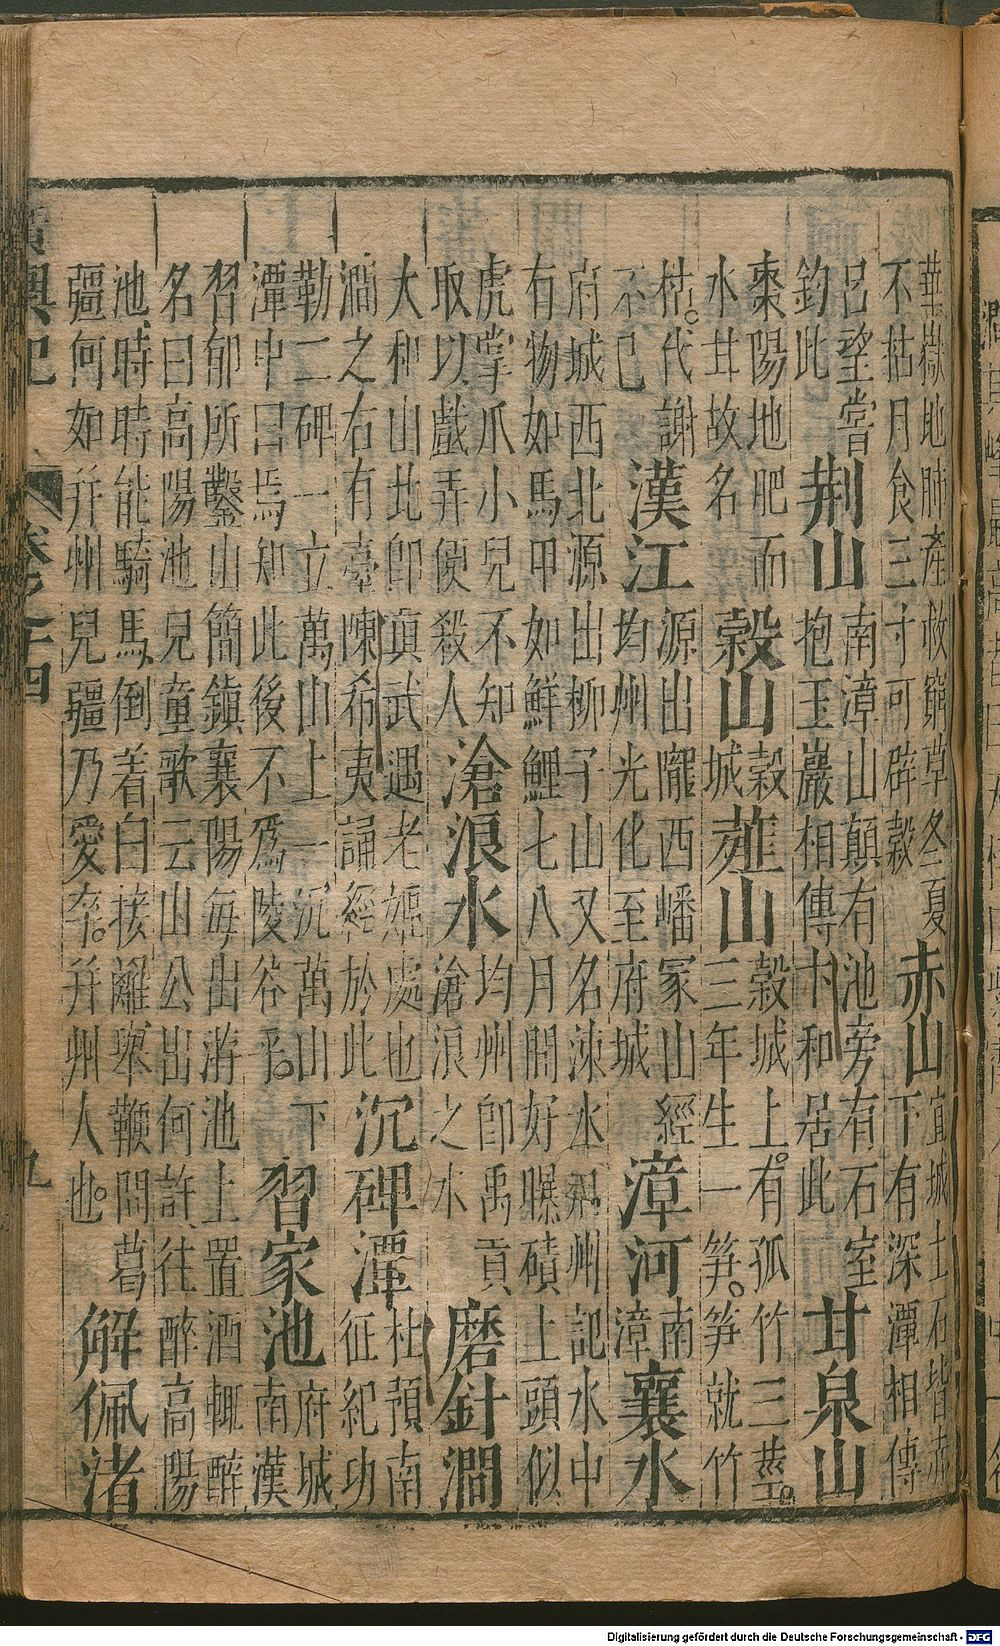 華嶽地肺產救窮草冬夏不枯月食三寸可辟穀赤山宜城土石皆赤下有深潭相傳
呂望嘗釣此荆山南漳山顛有池旁有石室抱玉巖相傳卞和居此甘泉山
棗陽地肥而水甘故名穀山穀城薤山穀城上有孤竹三莖三年生一笋笋就竹
枯代謝不已漢江源出隴西嶓冢山經均州光化至府城漳河南漳襄水
府城西北源出柳子山又名涑水荆州記水中有物如馬甲如鮮鯉七八月間好曝磧上頭似
虎掌爪小兒不知取以戲弄便殺人滄浪水均州卽禹貢滄浪之水磨針澗
大和山北卽真武遇老嫗處也澗之右有臺陳希夷誦經於此沉碑潭杜預南征紀功
勒二碑一立萬山上一沉萬山下潭中曰焉知此後不爲陵谷乎習家池府城南漢
習郁所鑿山簡鎮襄陽每出游池上置酒輒醉名曰高陽池兒童歌云山公出何許往醉高陽
池時時能騎馬倒着白接䍦舉鞭問葛疆何如并州兒疆乃愛卒并州人也解佩渚
廣輿記 卷之十四 九
Digitalisierung gefördert durch die Deutsche Forschungsgemeinschaft - DFG